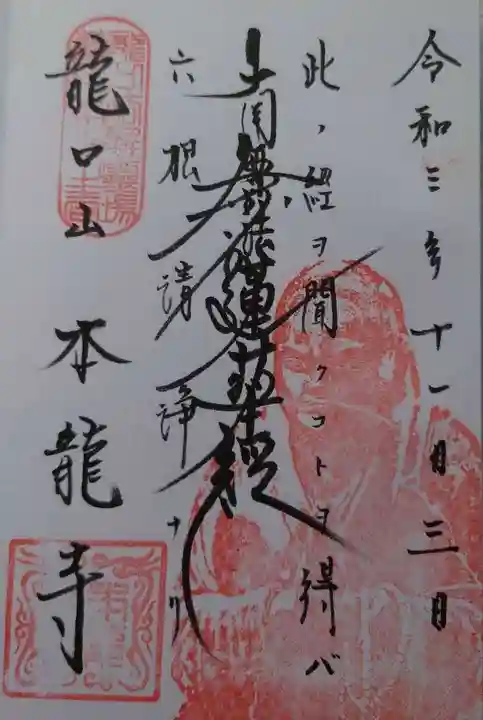 令和三年十一月三日
此ノ経ヲ聞クコトヲ得バ
南無妙法蓮華経
六根清浄ナリ
龍口山 本龍寺